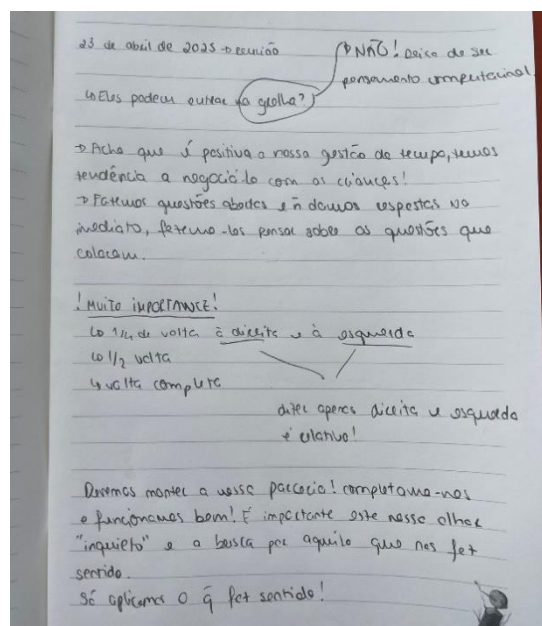 23 de abril de 2025 → reunião
↳ Eles podem entrar na grelha?
→ NÃO! Deixa de ser
pensamento computacional.
→ Acha que é positiva a nossa gestão do tempo, temos
tendência a negociá-lo com as crianças!
→ Fazemos questões abertas e ñ damos respostas no
imediato, fazemo-los pensar sobre as questões que
colocam.
! MUITO IMPORTANTE!
↳ 1/4 de volta à direita e à esquerda
↳ 1/2 volta
↳ volta completa
dizer apenas direita e esquerda
é relativo!
Devemos manter a nossa parceria! completamo-nos
e funcionamos bem! É importante este nosso olhar
"inquieto" e a busca por aquilo que nos faz
sentido.
Só aplicamos o q̃ faz sentido!